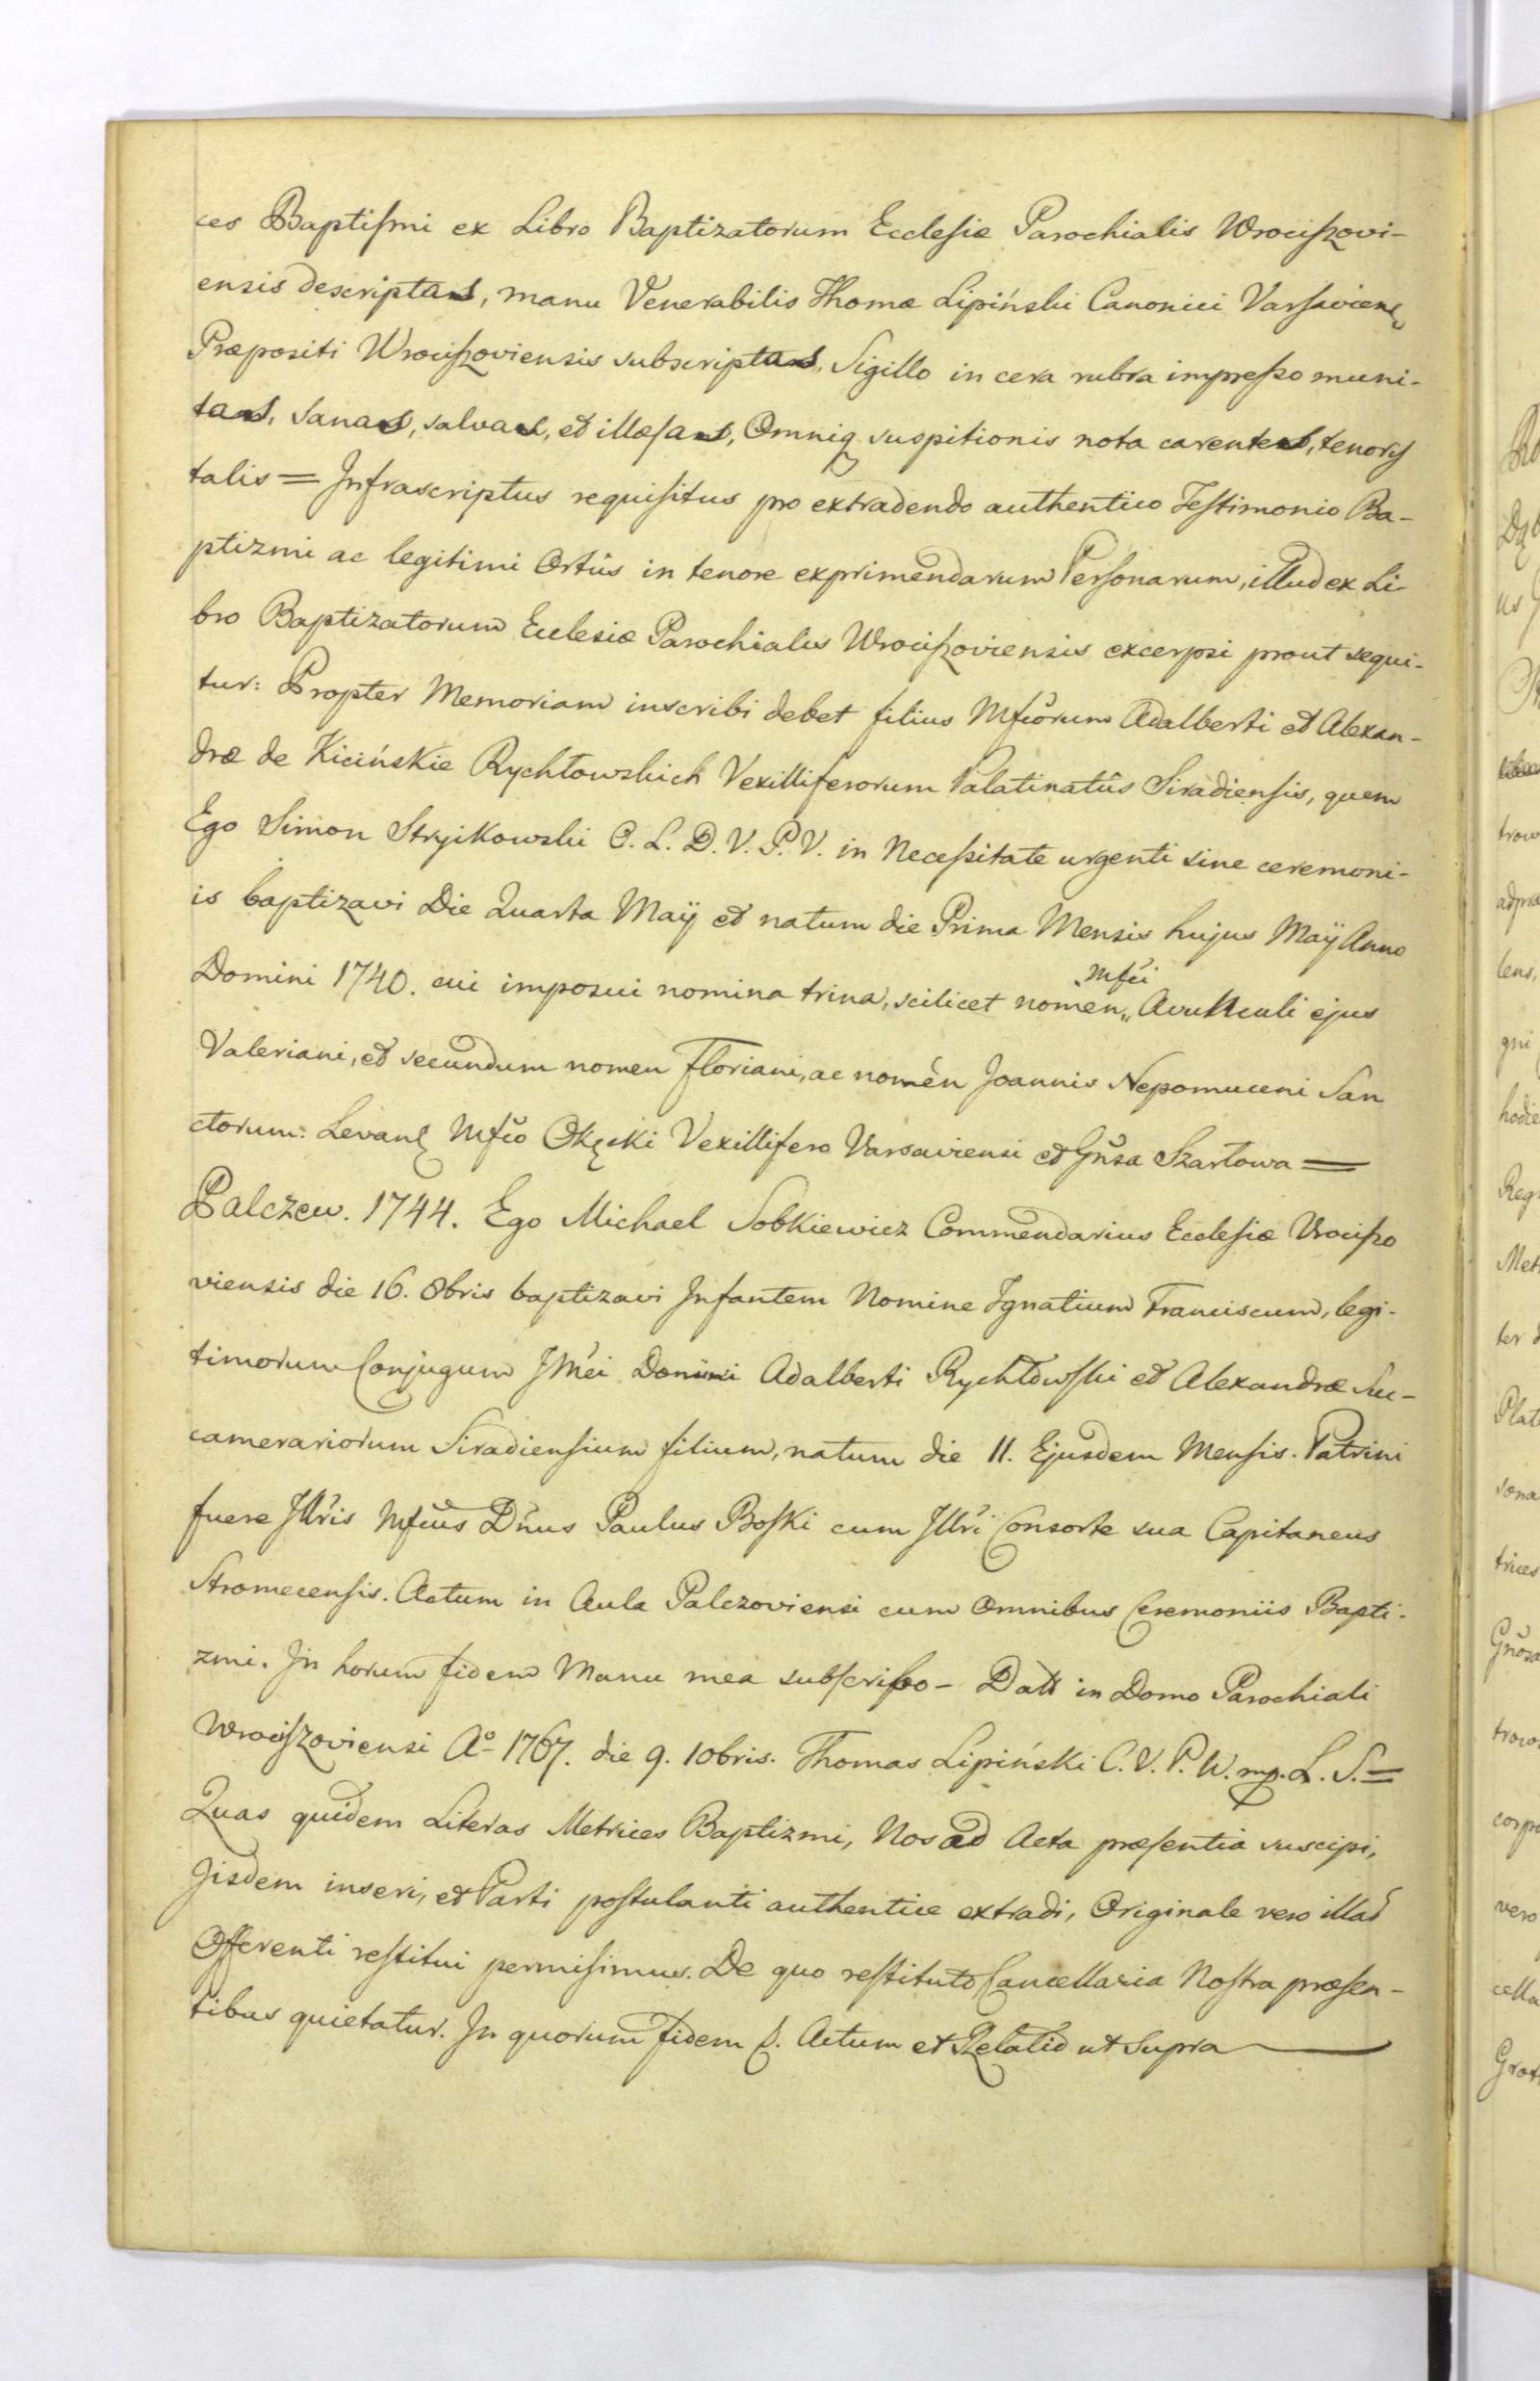 ces Baptiſmi ex Libro Baptizatorum Eccleſiæ Parochialis Wrociſzovi-
ensis descriptas, manu Venerabilis Thomæ Lipiński Canonici Varſaviens
Præpositi Wrociſzoviensis subscriptas, Sigillo in cera rubra impreſso muni-
tas, sanas, salvas, et illæſas, Omniq suspitionis nota carentes, tenoris
talis = Infrascriptus requiſitus pro extradendo authentico Teſtimonio Ba-
ptizmi ac legitimi Ortûs in tenore exprimendarum Perſonarum, illud ex Li-
bro Baptizatorum Ecclesiæ Parochialis Wrociſzoviensis excerpsi prout sequi-
tur: Propter Memoriam inscribi debet filius Mficorum Adalberti et Alexan-
dræ de Kicińskie Rychłowskich Vexilliferorum Palatinatûs Siradienſis, quem
Ego Simon Stryikowski C. L. D. V. P. V. in Neceſsitate urgenti sine ceremoni-
is baptizavi Die Quarta Maÿ et natum die Prima Mensis hujus Maÿ Anno
Mfci
Domini 1740. cui imposui nomina trina, scilicet nomen„ Avunculi ejus
Valeriani, et secundum nomen Floriani, ac nomen Joannis Nepomuceni San
ctorum: Levante Mfco Okęcki Vexillifero Varsaviensi et Gnsa Szartowa =
Palczew. 1744. Ego Michael Sobkiewicz Commendarius Eccleſiæ Vrociſzo
viensis die 16. 8bris baptizavi Infantem Nomine Ignatium Franciscum, legi-
timorum Conjugum JMci Domini Adalberti Rychłowſki et Alexandræ Suc-
camerariorum Siradienſium filium, natum die 11. Ejusdem Menſis. Patrini
fuere Jllris Mfcus Dnus Paulus Boſki cum Jllri Consorte sua Capitaneus
Stromecenſis. Actum in Aula Palczoviensi cum Omnibus Ceremoniis Bapti-
zmi. In horum fidem Manu mea subſcribo – Datt in Domo Parochiali
Wrociſzoviensi Aº 1767. die 9. 10bris. Thomas Lipiński C. V. P. W. mp. L. S. =
Quas quidem Literas Metrices Baptizmi, Nos ad Acta præſentia suscipi,
Iisdem inseri, et Parti poſtulanti authentice extradi, Originale vero illas
Offerenti reſtitui permiſimus. De quo reſtituto Cancellaria Noſtra præſen-
tibus quietatur. In quorum fidem ſ. Actum et Relatio ut Supra